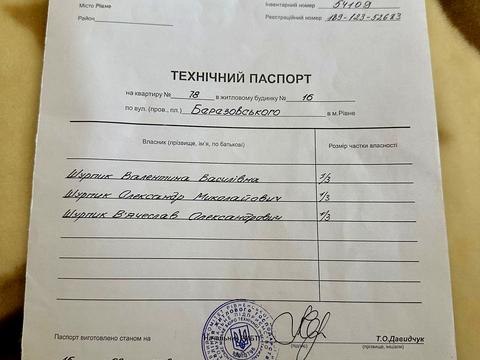 Місто Рівне
Інвентарний номер 54109
Район
Реєстраційний номер 189-123-52683
ТЕХНІЧНИЙ ПАСПОРТ
на квартиру № 78 в житловому будинку № 16
по вул. (пров., пл.) Баразовського в м.Рівне
Власник (прізвище, ім'я, по батькові) Розмір частки власності
Шурпик Валентина Василівна 1/3
Шурпик Олександр Миколайович 1/3
Шурпик В'ячеслав Олександрович 1/3
Паспорт виготовлено станом на
Начальник
Т.О.Давидчук
(прізвище, ініціали)